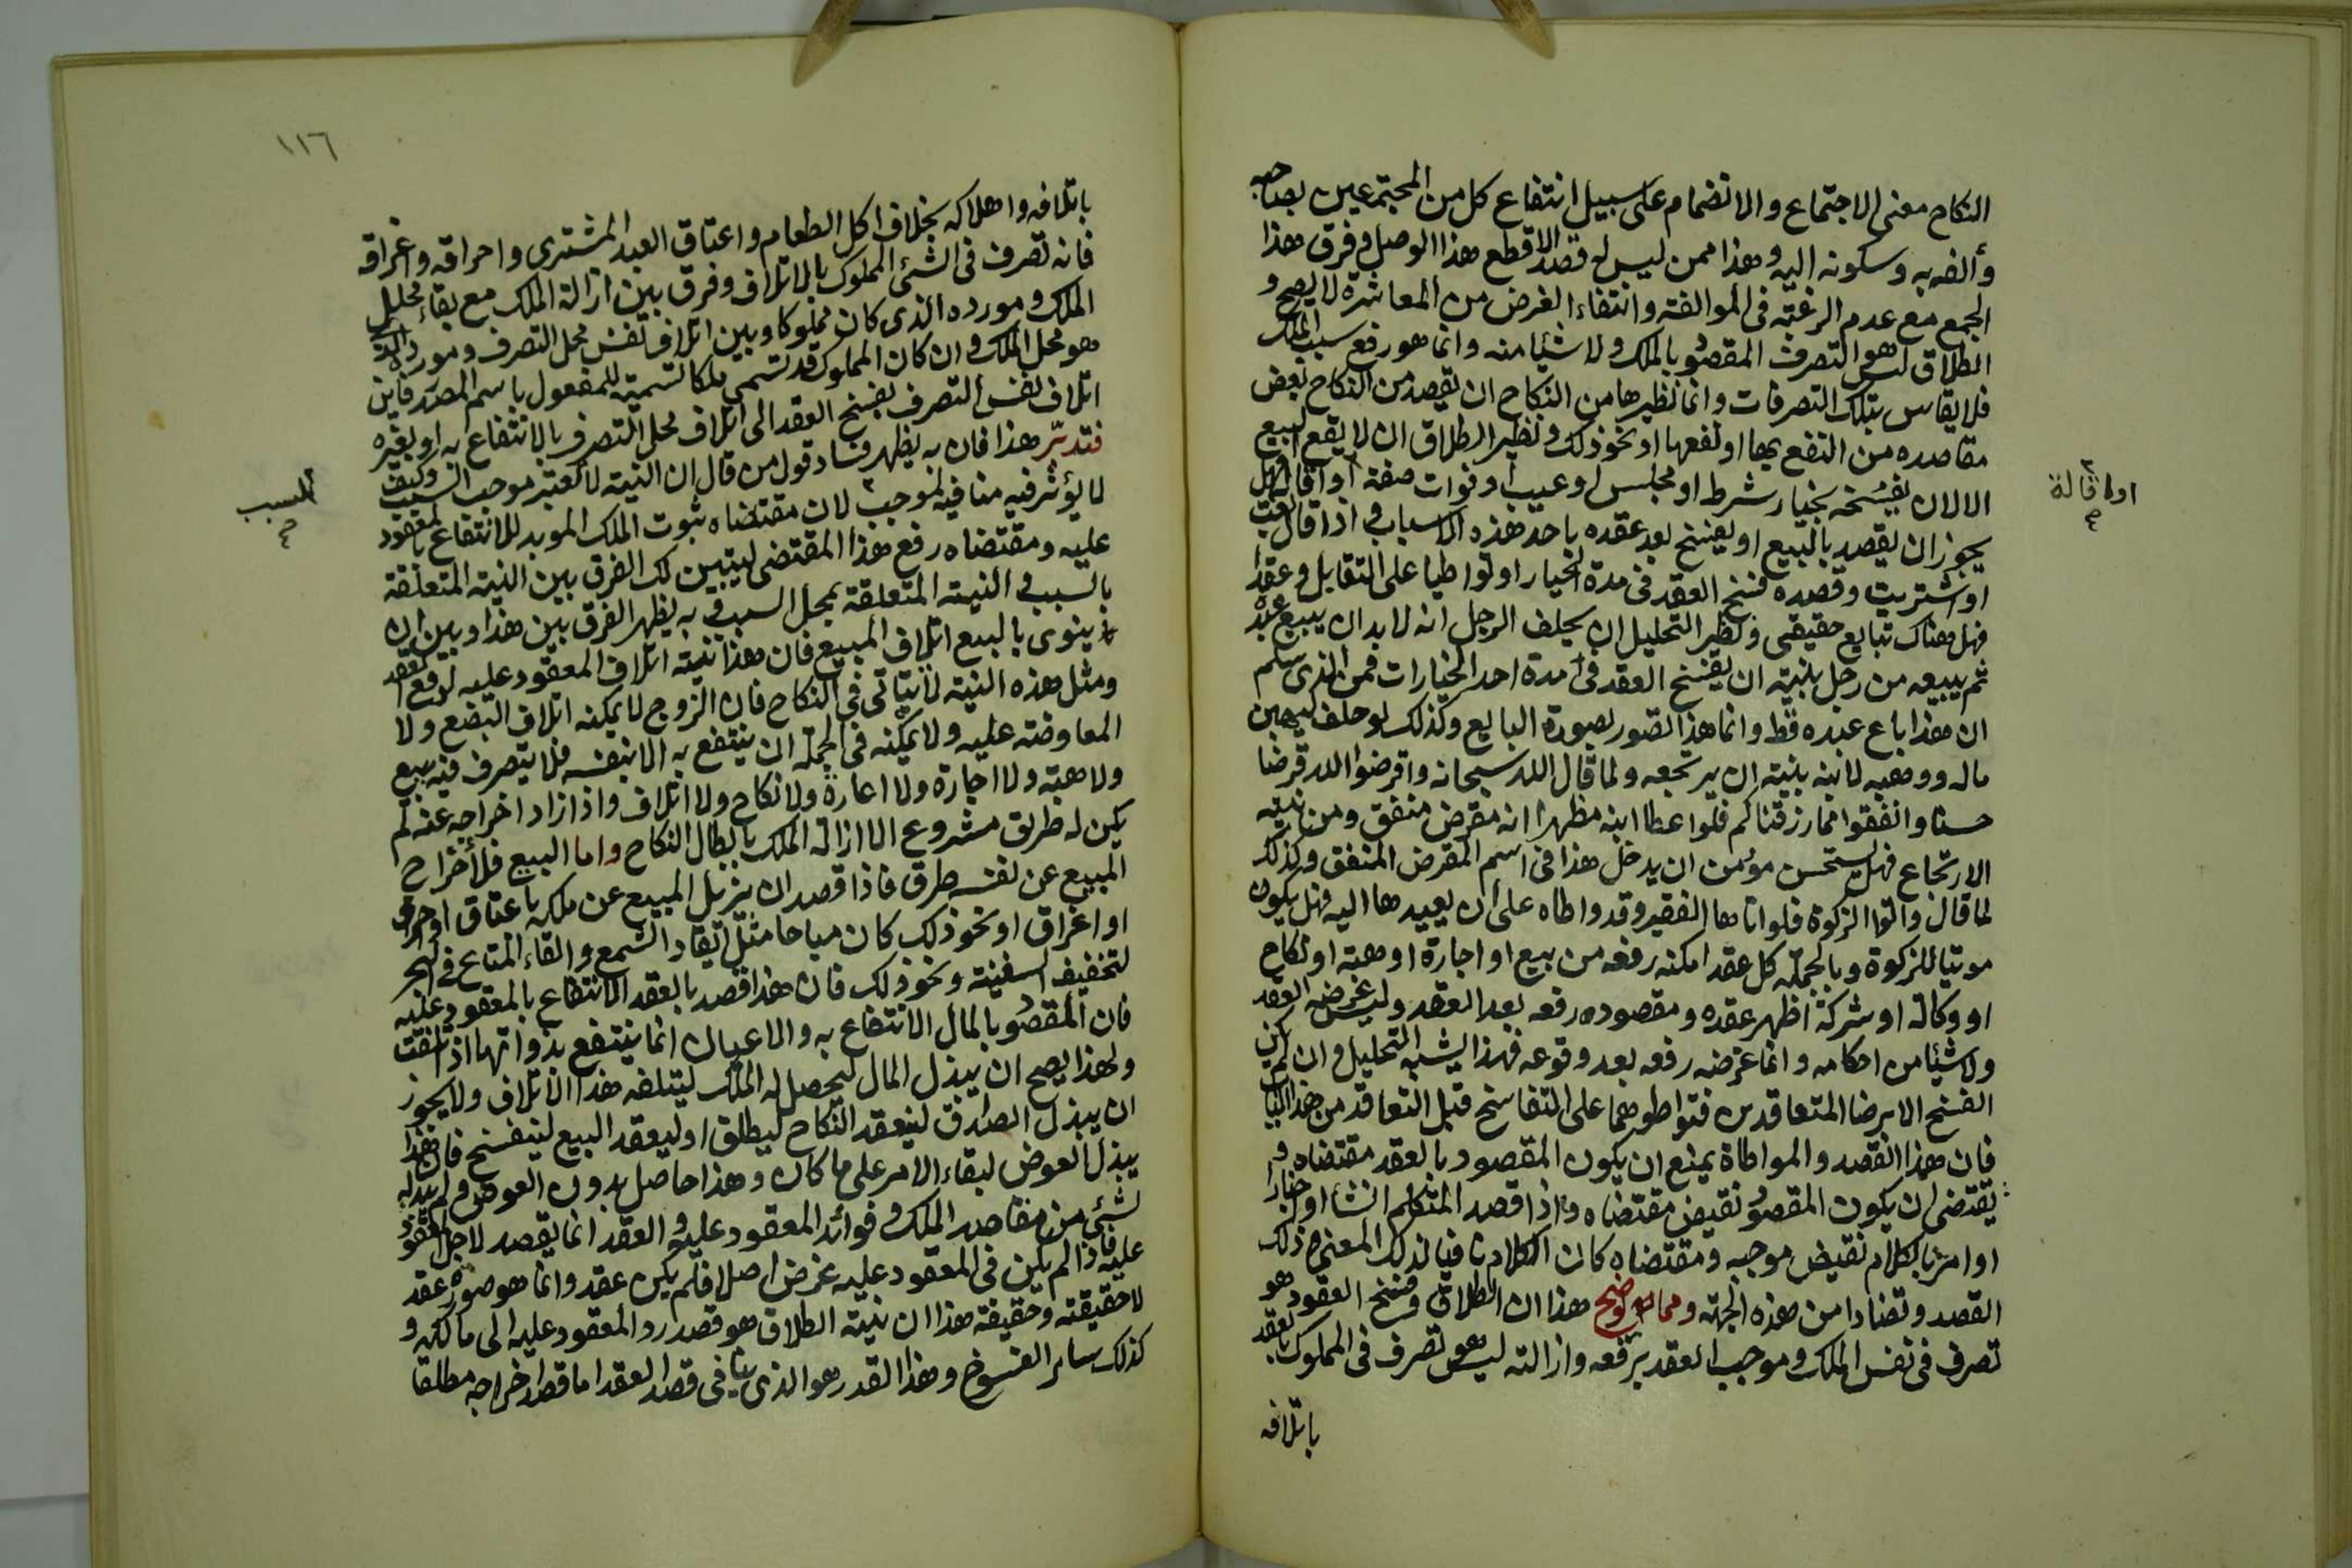 النكاح معنى الاجتماع والانضمام على سبيل انتفاع كل من المجتمعين بصاحبه
وألفه به وسكونه اليه وهذا ممن ليس له قصد الا قطع هذا الوصل وفرق هذا
الجمع مع عدم الرغبة في الموالفة وانتفاء الغرض من المعاشرة لا يصح و
الطلاق ليس هو التصرف المقصود بالملك ولا شيئا منه وانما هو رفع سبب الملك
فلا يقاس بتلك التصرفات وانما نظيرها من النكاح ان يقصد من النكاح بعض
مقاصده من النفع بها او نفعها او نحو ذلك ونظير الطلاق ان لا يقع البيع
الا لان يفسخه بخيار شرط او مجلس او عيب او فوات صفة او اقالة فهل
يجوز ان يقصد بالبيع او يفسخ بعد عقده باحد هذه الاسباب واذا قال بعت
او اشتريت وقصده فسخ العقد في مدة الخيار او تواطيا على التقايل وعقدا
فهل هناك تبايع حقيقي ونظير التحليل ان يحلف الرجل انه لا بد ان يبيع عبده
ثم يبيعه من رجل بنية ان يفسخ العقد في مدة احد الخيارات فمن الذي سلم
ان هذا باع عبده قط وانما هذا تصور بصورة البايع وكذلك لو حلف ليهبن
ماله ووهبه لابنه بنية ان يرتجعه ولما قال الله سبحانه واقرضوا الله قرضا
حسنا وانفقوا مما رزقناكم فلو اعطا ابنه مظهرا انه مقرض منفق ومن نيته
الارتجاع فهل يستحسن مؤمن ان يدخل هذا في اسم المقرض المنفق وكذلك
لما قال واتوا الزكوة فلو اتاها الفقير وقد واطاه على ان يعيدها اليه فهل يكون
موتيا للزكوة وبالجملة كل عقد امكنه رفعه من بيع او اجارة او هبة او نكاح
او وكالة او شركة اظهر عقده ومقصوده رفعه بعد العقد وليس غرضه العقد
ولا شيئا من احكامه وانما غرضه رفعه بعد وقوعه فهذا يشبه التحليل وان لم يكن
الفسخ الا برضا المتعاقدين فتواطوهما على التفاسخ قبل التعاقد من هذا الباب
فان هذا القصد والمواطاة يمنع ان يكون المقصود بالعقد مقتضاه و
يقتضى ان يكون المقصود نقيض مقتضاه واذا قصد المتكلم انشا او اخبارا
او امرا بالكلام نقيض موجبه ومقتضاه كان الكلام نافيا لذلك المعنى وذلك
القصد وتضادا من هذه الجهة ومما يوضح هذا ان الطلاق وفسخ العقود هو
تصرف في نفس الملك وموجب العقد برفعه وازالته ليس هو تصرف في المملوك بالعقد
باتلافه
او اقالة
١١٦
باتلافه واهلاكه بخلاف اكل الطعام واعتاق العبد المشترى واحراقه واغراقه
فانه تصرف في الشئ المملوك بالاتلاف وفرق بين ازالة الملك مع بقاء محل
الملك ومورده الذي كان مملوكا وبين اتلاف نفس محل التصرف ومورده الذي
هو محل الملك وان كان المملوك قد تسمى ملكا تسمية للمفعول باسم المصدر فاين
اتلاف نفس التصرف بفسخ العقد الى اتلاف محل التصرف بالانتفاع به او بغيره
فتدبر هذا فان به يظهر فساد قول من قال ان النية لا تغير موجب السبب وكيف
لا يؤثر فيه منافيه لموجب لان مقتضاه ثبوت الملك الموبد للانتفاع بالمعقود
عليه ومقتضاه رفع هذا المقتضى ليتبين لك الفرق بين النية المتعلقة
بالسبب والنية المتعلقة بمحل السبب وبه يظهر الفرق بين هذا وبين ان
ينوى بالبيع اتلاف المبيع فان هذا نية اتلاف المعقود عليه لا رفع العقد
ومثل هذه النية لا يتاتى في النكاح فان الزوج لا يمكنه اتلاف البضع ولا
المعاوضة عليه ولا يمكنه في الجملة ان ينتفع به الا بنفسه فلا يتصرف فيه ببيع
ولا هبة ولا اجارة ولا اعارة ولا نكاح ولا اتلاف واذا اراد اخراجه عنه لم
يكن له طريق مشروع الا ازالة الملك بابطال النكاح واما البيع فلاخراج
المبيع عن نفسه طرق فاذا قصد ان يزيل المبيع عن ملكه باعتاق او احراق
او اغراق او نحو ذلك كان مباحا مثل ايقاد الشمع والقاء المتاع في البحر
لتخفيف السفينة ونحو ذلك فان هذا قصد بالعقد الانتفاع بالمعقود عليه
فان المقصود بالمال الانتفاع به والاعيان انما ينتفع بذواتها اذا تلفت
ولهذا يصح ان يبذل المال ليحصل له الملك ليتلفه هذا الاتلاف ولا يجوز
ان يبذل الصداق ليعقد النكاح ليطلق او ليعقد البيع ليفسخ فان هذا
يبذل العوض لبقاء الامر على ما كان وهذا حاصل بدون العوض ولم يبدله
لشئ من مقاصد الملك وفوائد المعقود عليه والعقد انما يقصد لاجل المعقود
عليه فاذا لم يكن في المعقود عليه غرض اصلا فلم يكن عقد وانما هو صورة عقد
لا حقيقته وحقيقة هذا ان نية الطلاق هو قصد رد المعقود عليه الى مالكه و
كذلك سائر الفسوخ وهذا القدر هو الذي ينافى قصد العقد اما قصد اخراجه مطلقا
السبب